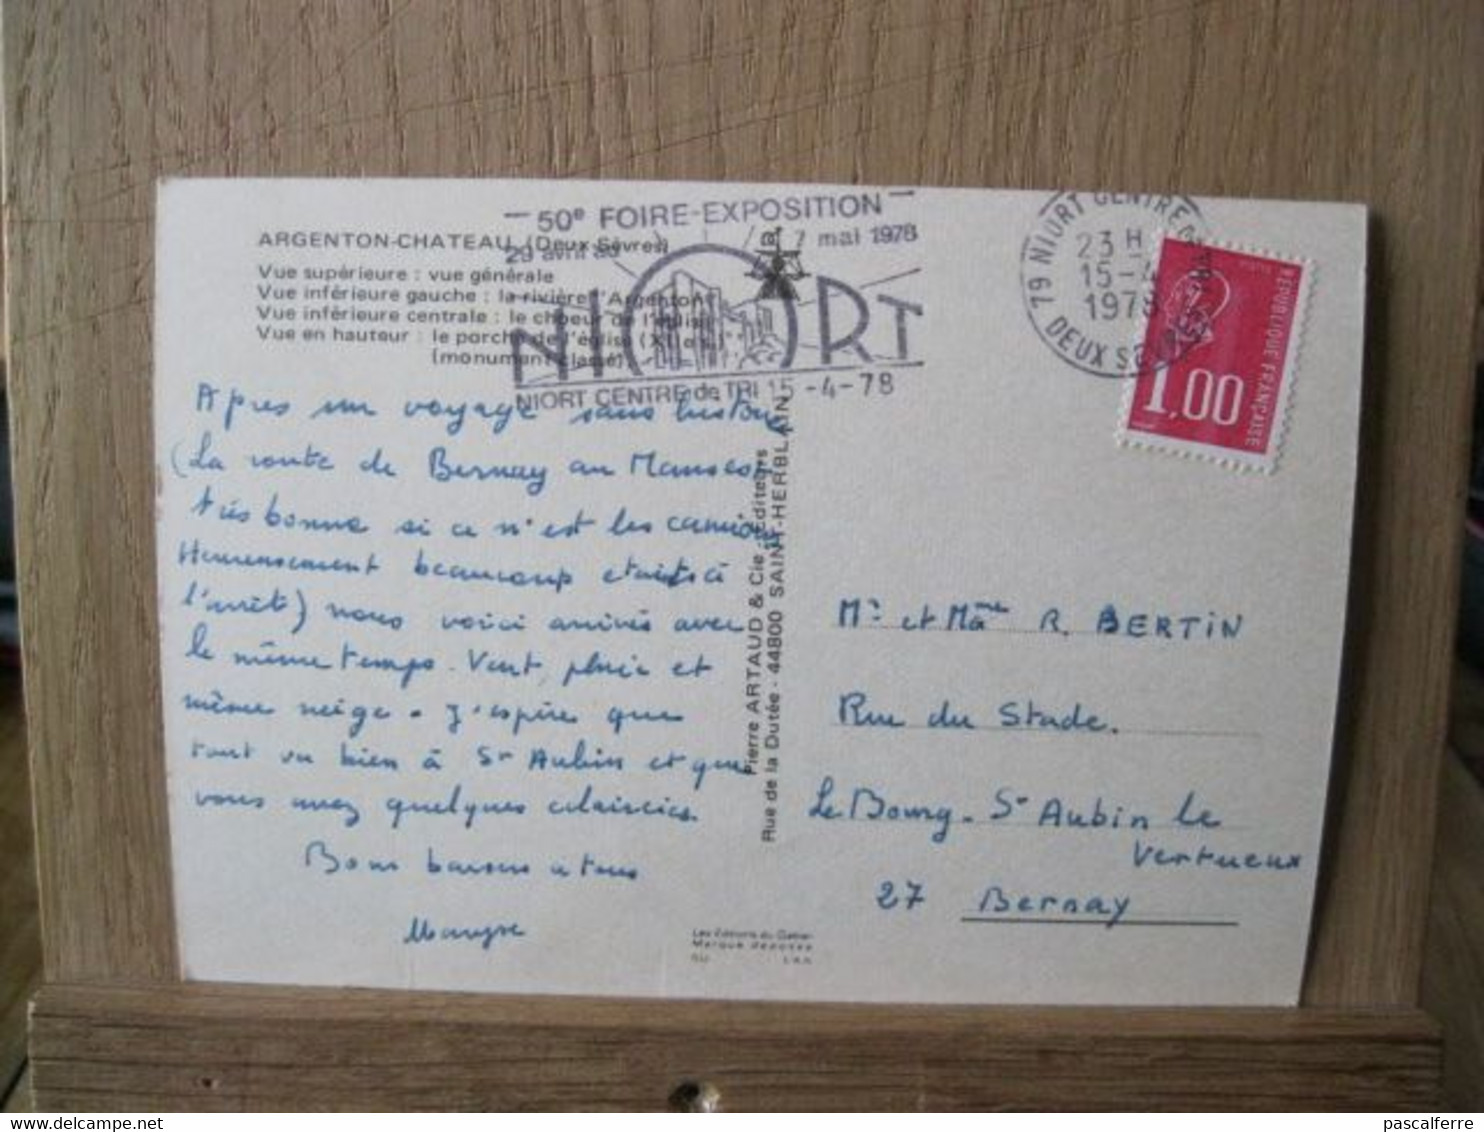 50e FOIRE-EXPOSITION
29 avril au 7 mai 1978
NIORT
NIORT CENTRE de TRI 15-4-78
79 NIORT CENTRE DE TRI
23 H
15-4
1978
DEUX SEVRES
REPUBLIQUE FRANÇAISE
1,00
ARGENTON-CHATEAU (Deux-Sèvres)
Vue supérieure : vue générale
Vue inférieure gauche : la rivière l'Argenton
Vue inférieure centrale : le choeur de l'église
Vue en hauteur : le porche de l'église
(monument classé)
Après un voyage sans histoire
(La route de Bernay au Mans est
très bonne si ce n'est les camions
Heureusement beaucoup étaient à
l'arrêt) nous voici arrivés avec
le même temps. Vent, pluie et
même neige. J'espère que
tout va bien à St Aubin et que
vous avez quelques éclaircies.
Bons baisers à tous
Maryse
Pierre ARTAUD & Cie - Editeurs
Rue de la Dutée - 44800 SAINT-HERBLAIN
Mr et Mme R. BERTIN
Rue du Stade.
Le Bourg - St Aubin le
Vertueux
27 Bernay
Les Editions du Gabier
Marque déposée
pascalferre
delcampe.net